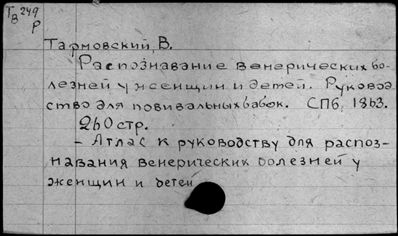 Тв 249
р
Тарновский, В.
Распознавание венерических бо-
лезней у женщин и детей. Руковод
ство для повивальных бабок. СПб, 1863.
260 стр.
- Атлас к руководству для распоз-
навания венерических болезней у
женщин и детей